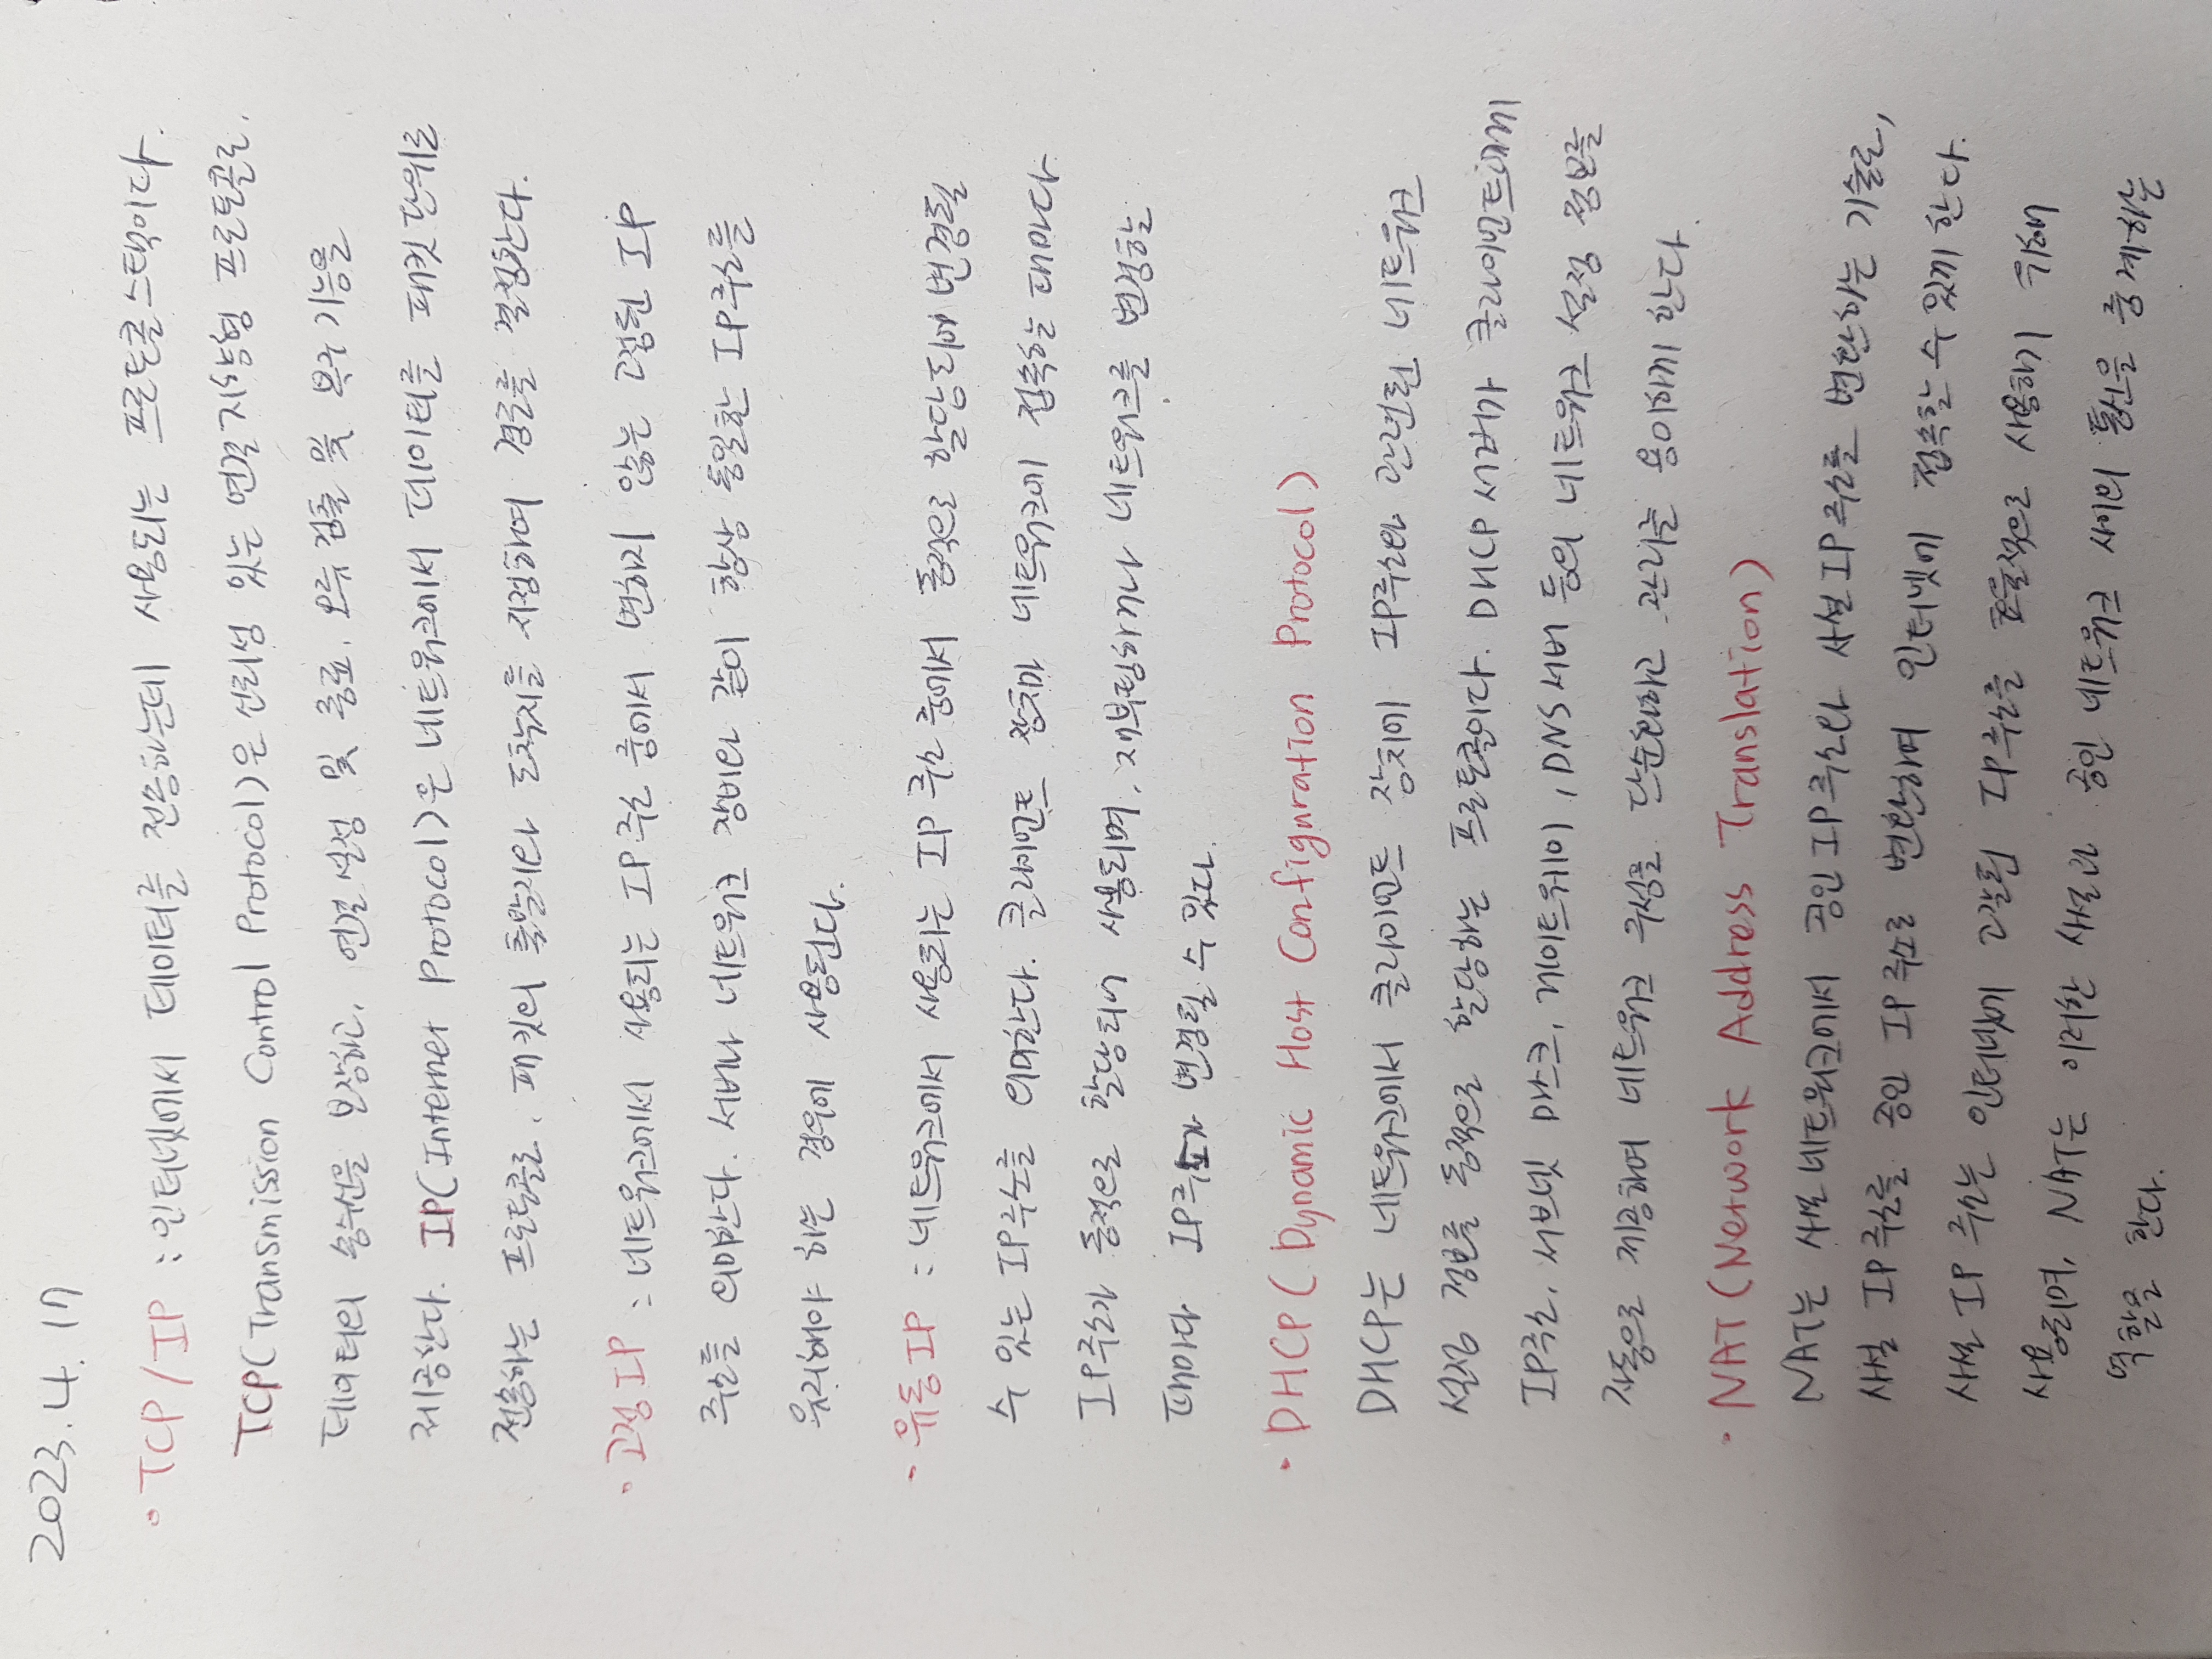 2023. 4. 17
• TCP/IP : 인터넷에서 데이터를 전송하는데 사용되는 프로토콜 스택이다.
TCP(Transmission Control Protocol)은 신뢰성 있는 연결 지향형 프로토콜로,
데이터의 송수신을 보장하고, 연결 설정 및 종료, 오류 검출 및 복구 기능을
제공한다. IP(Internet Protocol)은 네트워크에서 데이터를 패킷 단위로
전송하는 프로토콜로, 패킷의 출발지와 도착지를 지정하여 경로를 결정한다.
• 고정 IP : 네트워크에서 사용되는 IP 주소 중에서 변하지 않는 고정된 IP
주소를 의미한다. 서버나 네트워크 장비와 같이 항상 동일한 IP주소를
유지해야 하는 경우에 사용된다.
• 유동 IP : 네트워크에서 사용되는 IP 주소 중에서 동적으로 할당되어 변경될
수 있는 IP주소를 의미한다. 클라이언트 장치가 네트워크에 접속하는 때마다
IP주소가 동적으로 할당되어 사용되며, 재부팅하거나 네트워크를 변경할
때마다 IP주소가 변경될 수 있다.
• DHCP(Dynamic Host Configuration Protocol)
DHCP는 네트워크에서 클라이언트 장치에 IP주소와 관련된 네트워크
설정 정보를 동적으로 할당하는 프로토콜이다. DHCP 서버가 클라이언트에게
IP주소, 서브넷 마스크, 게이트웨이, DNS 서버 등의 네트워크 설정 정보를
자동으로 제공하여 네트워크 구성을 단순화하고 관리를 용이하게 한다.
• NAT(Network Address Translation)
NAT는 사설 네트워크에서 공인 IP 주소와 사설 IP 주소를 변환하는 기술로,
사설 IP 주소를 공인 IP 주소로 변환하여 인터넷에 접속할 수 있게 한다.
사설 IP 주소는 인터넷에 고갈된 IP 주소를 효율적으로 사용하기 위해
사용되며, NAT는 이러한 사설과 공인 네트워크 사이의 통신을 중계하는
역할을 한다.